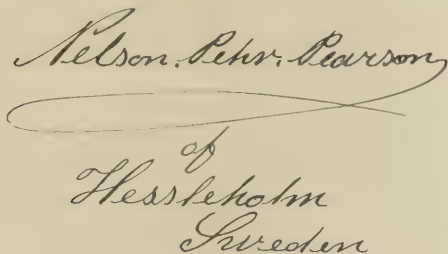 Nelson. Pehr. Pearson
of
Hessleholm
Sweden